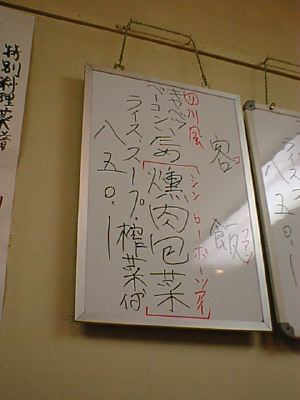 特別料理菜譜
客飯
コ ファン
四川風
シンローホーツァイ
燻肉包菜
キャベツ
ベーコン炒め
ライス・スープ・搾菜付
八五〇.-